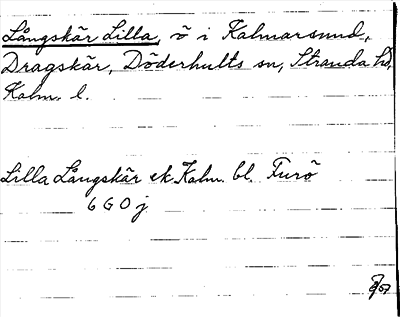 Långskär Lilla, ö i Kalmarsund,
Dragskär, Döderhults sn, Stranda hd,
Kalm. l.
Lilla Långskär ek. Kalm. bl. Furö
6 G O j